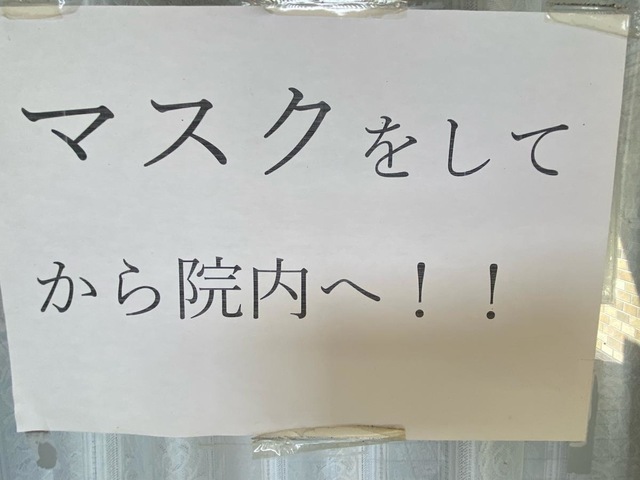 マスクをして
から院内へ！！